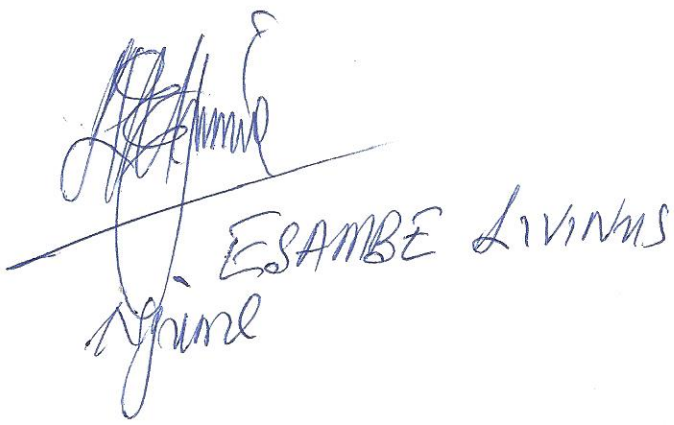 ESAMBE LIVINUS
Njume